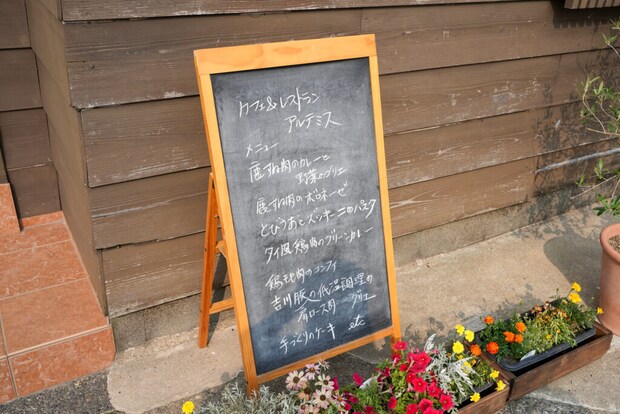 カフェ&レストラン
アルテミス
メニュー
鹿すね肉のカレーと
野菜のグリエ
鹿すね肉のボロネーゼ
とびうおとズッキーニのパスタ
タイ風鶏肉のグリーンカレー
鶏もも肉のコンフィ
吉川豚の低温調理の
肩ロース肉 グリエ
手づくりのケーキ etc